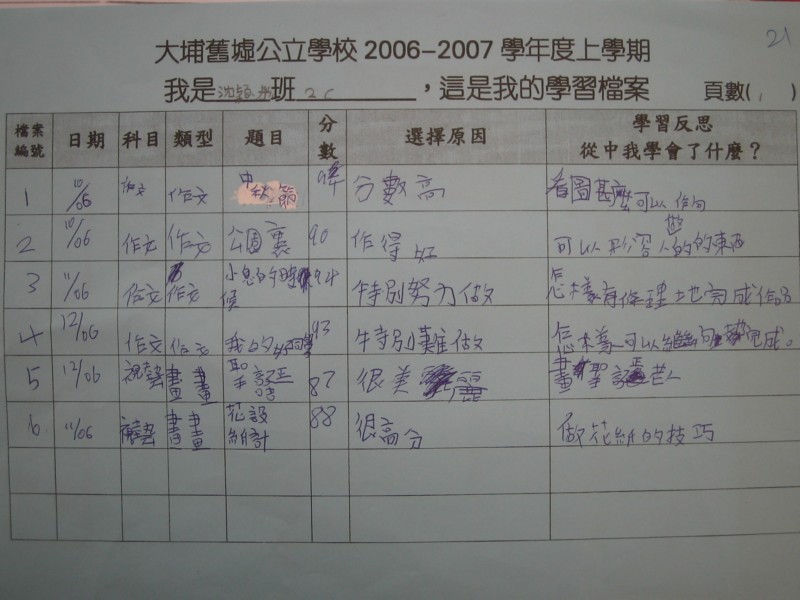 21
大埔舊墟公立學校 2006-2007 學年度上學期
我是沈穎彤班 2C ，這是我的學習檔案 頁數( 1 )
檔案編號 日期 科目 類型 題目 分數 選擇原因 學習反思 從中我學會了什麼？
1 10/06 作文 作文 中秋節 94 分數高 看圖甚麼可以作句
2 10/06 作文 作文 公園裏 90 作得好 可以形容人的的東西
3 11/06 作文 作文 小息的時候 94 特別努力做 怎樣有條理地完成作品
4 12/06 作文 作文 我的好同學 93 特別難做 怎樣可以繼句完成。
5 12/06 視藝 畫畫 聖誕 87 很美麗 畫聖誕老人
6 11/06 視藝 畫畫 花紙設計 88 很高分 做花紙的技巧